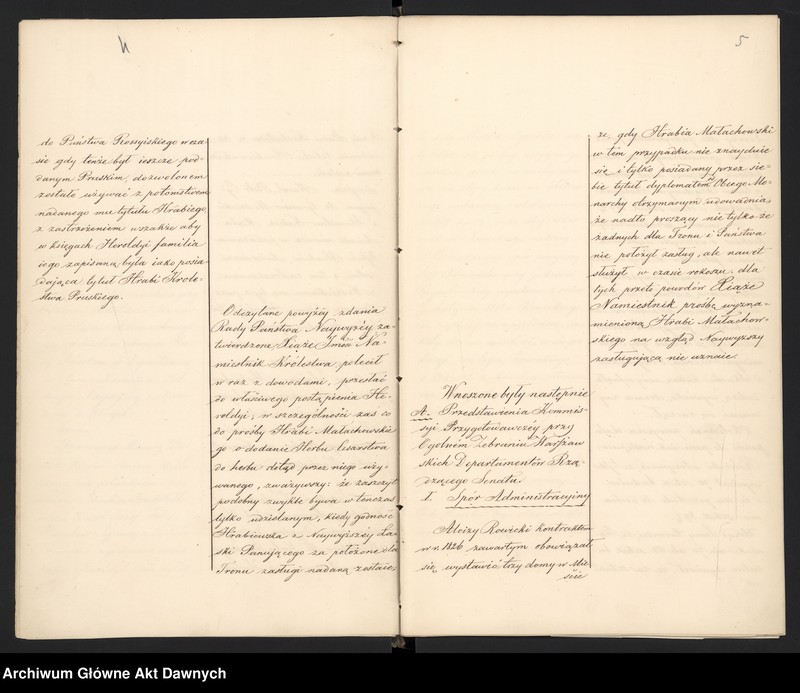 4
do Państwa Rossyiskiego w cza-
sie gdy tenże był ieszcze pod-
danym Pruskim, dozwolonem
zostało używać z potomstwem
nadanego mu tytułu Hrabiego,
z zastrzeżeniem wszakże aby
w księgach Heroldyi familia
iego zapisaną była iako posia-
dająca tytuł Hrabi Króle-
stwa Pruskiego.
Odczytane powyżéy zdania
Rady Państwa Naywyżéy za-
twierdzone Xiąże Jmść Na-
miestnik Królestwa polecił
wraz z dowodami, przesłać
do właściwego postąpienia He-
roldyi; w szczególności zaś co
do prośby Hrabi Małachowskie-
go o dodanie Herbu Cesarstwa
do herbu dotąd przez niego uży-
wanego, zważywszy: że zaszczyt
podobny zwykle bywa w tenczas
tylko udzielanym, kiedy godność
Hrabiowska z Naywyższéy Ła-
ski Panującego za położone dla
Tronu zasługi nadaną zostaie,
5
że gdy Hrabia Małachowski
w tém przypadku nie znayduie
się i tylko posiadany przez sie-
bie tytuł dyplomatem Obcego Mo-
narchy otrzymanym udowadnia,
że nadto proszący nie tylko że
żadnych dla Tronu i Państwa
nie położył zasług, ale nawet
służył w czasie rokoszu, dla
tych przeto powodów Xiąże
Namiestnik prośbę wyzna-
mienioną Hrabi Małachow-
skiego na wzgląd Naywyższy
zasługującą nie uznaie.
Wnoszone były następnie
A. Przedstawienia Kommis-
syi Przygotowawczéy przy
Ogólném Zebraniu Warszaw-
skich Departamentów Rzą-
dzącego Senatu.
I. Spór Administracyiny
Aloizy Rowicki kontraktem
w r. 1826 zawartym obowiązał
się, wystawić trzy domy w Mie-
ście
Archiwum Główne Akt Dawnych